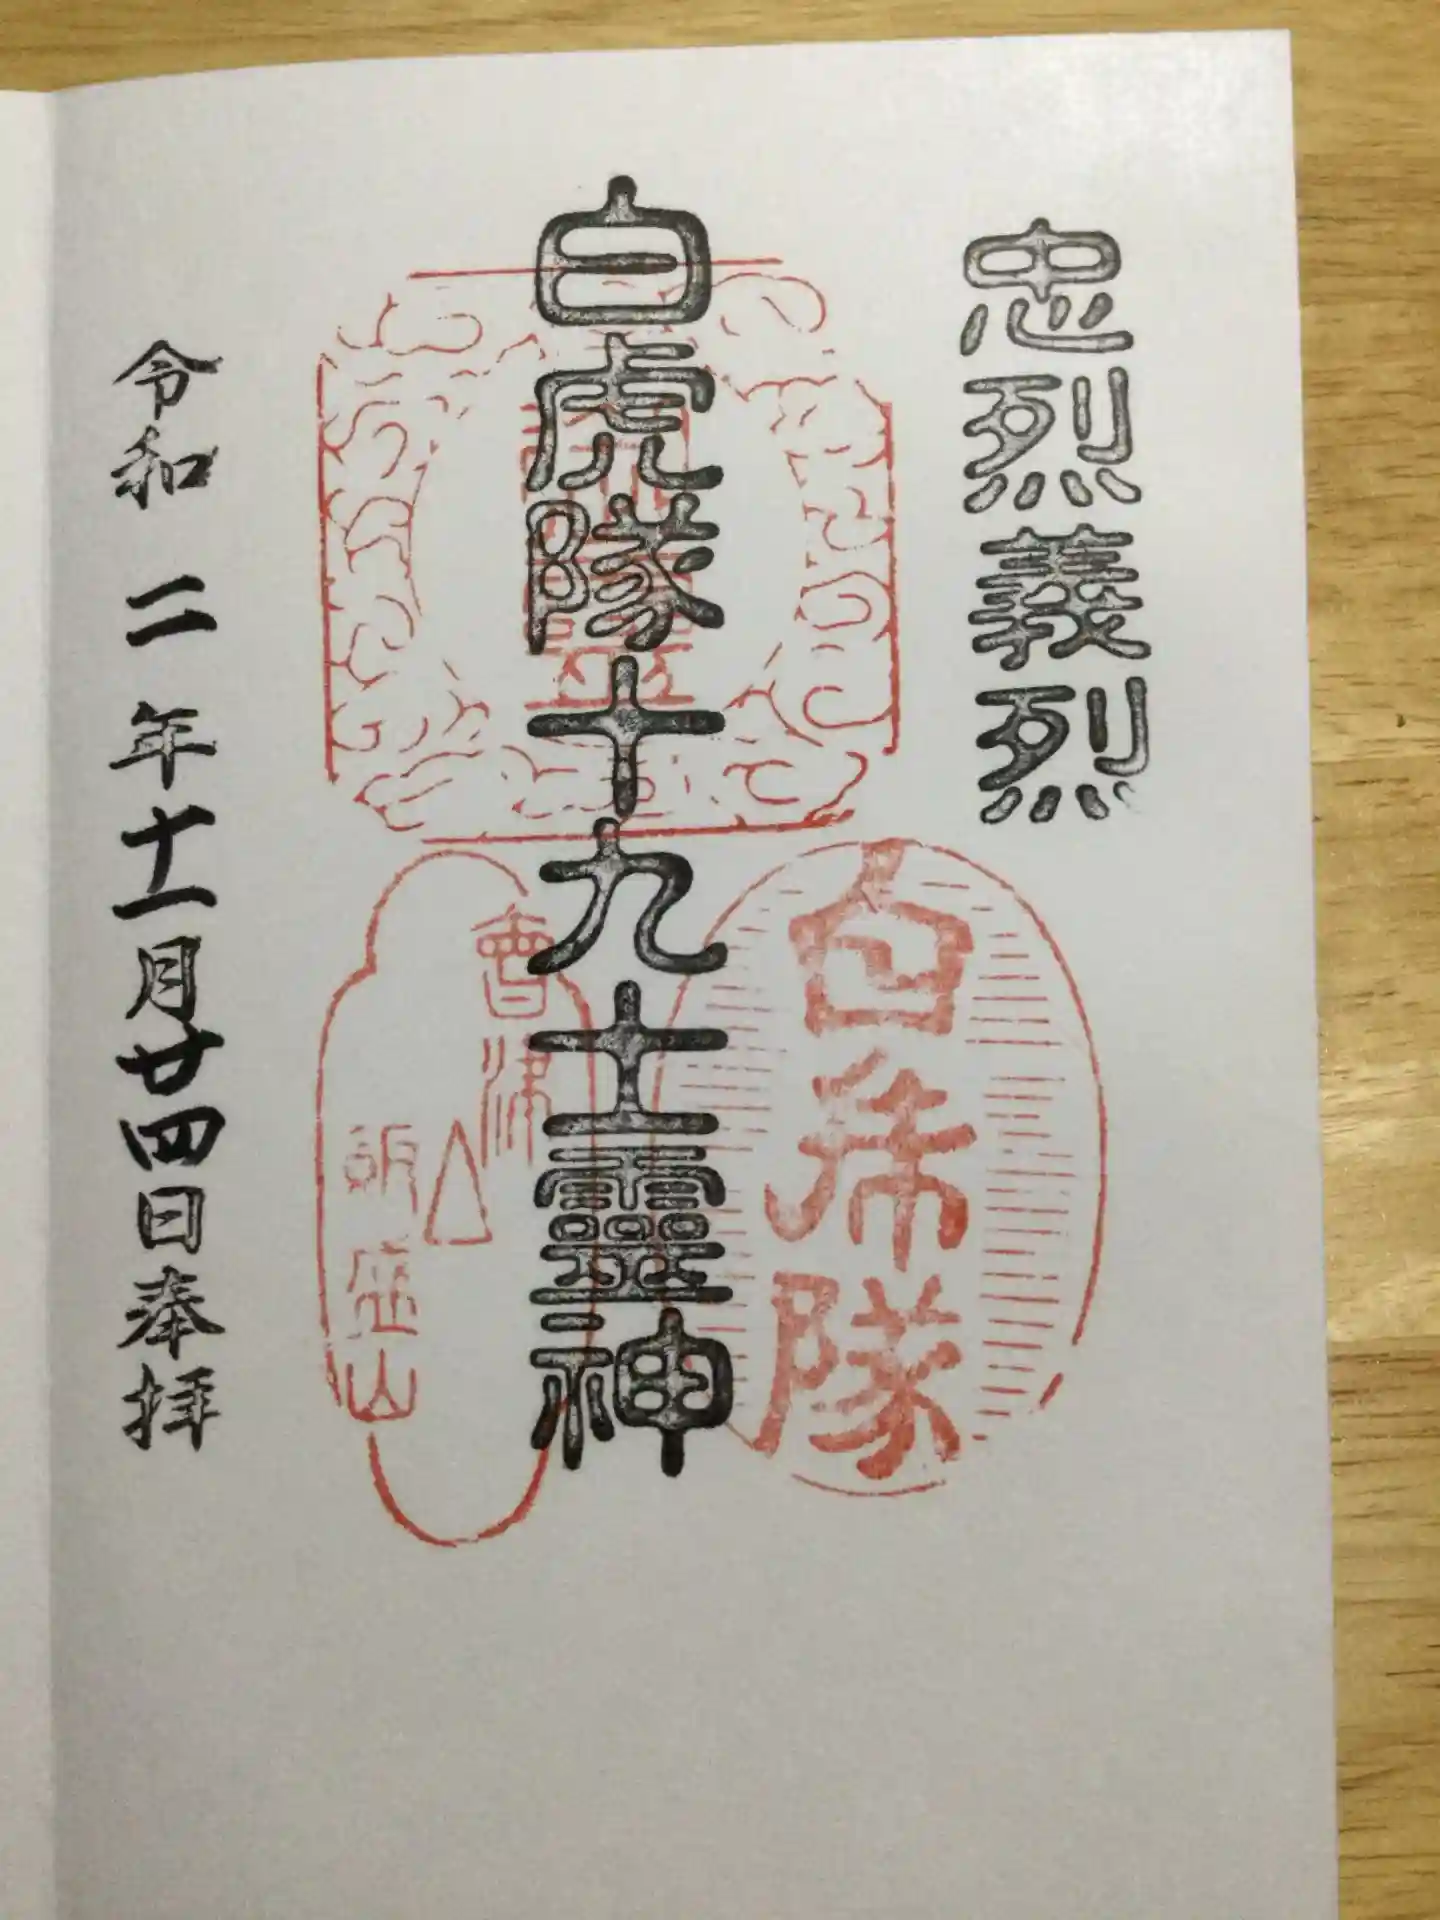 忠烈義烈
白虎隊
白虎隊十九士霊神
會津
飯盛山
令和二年十一月廿四日奉拝